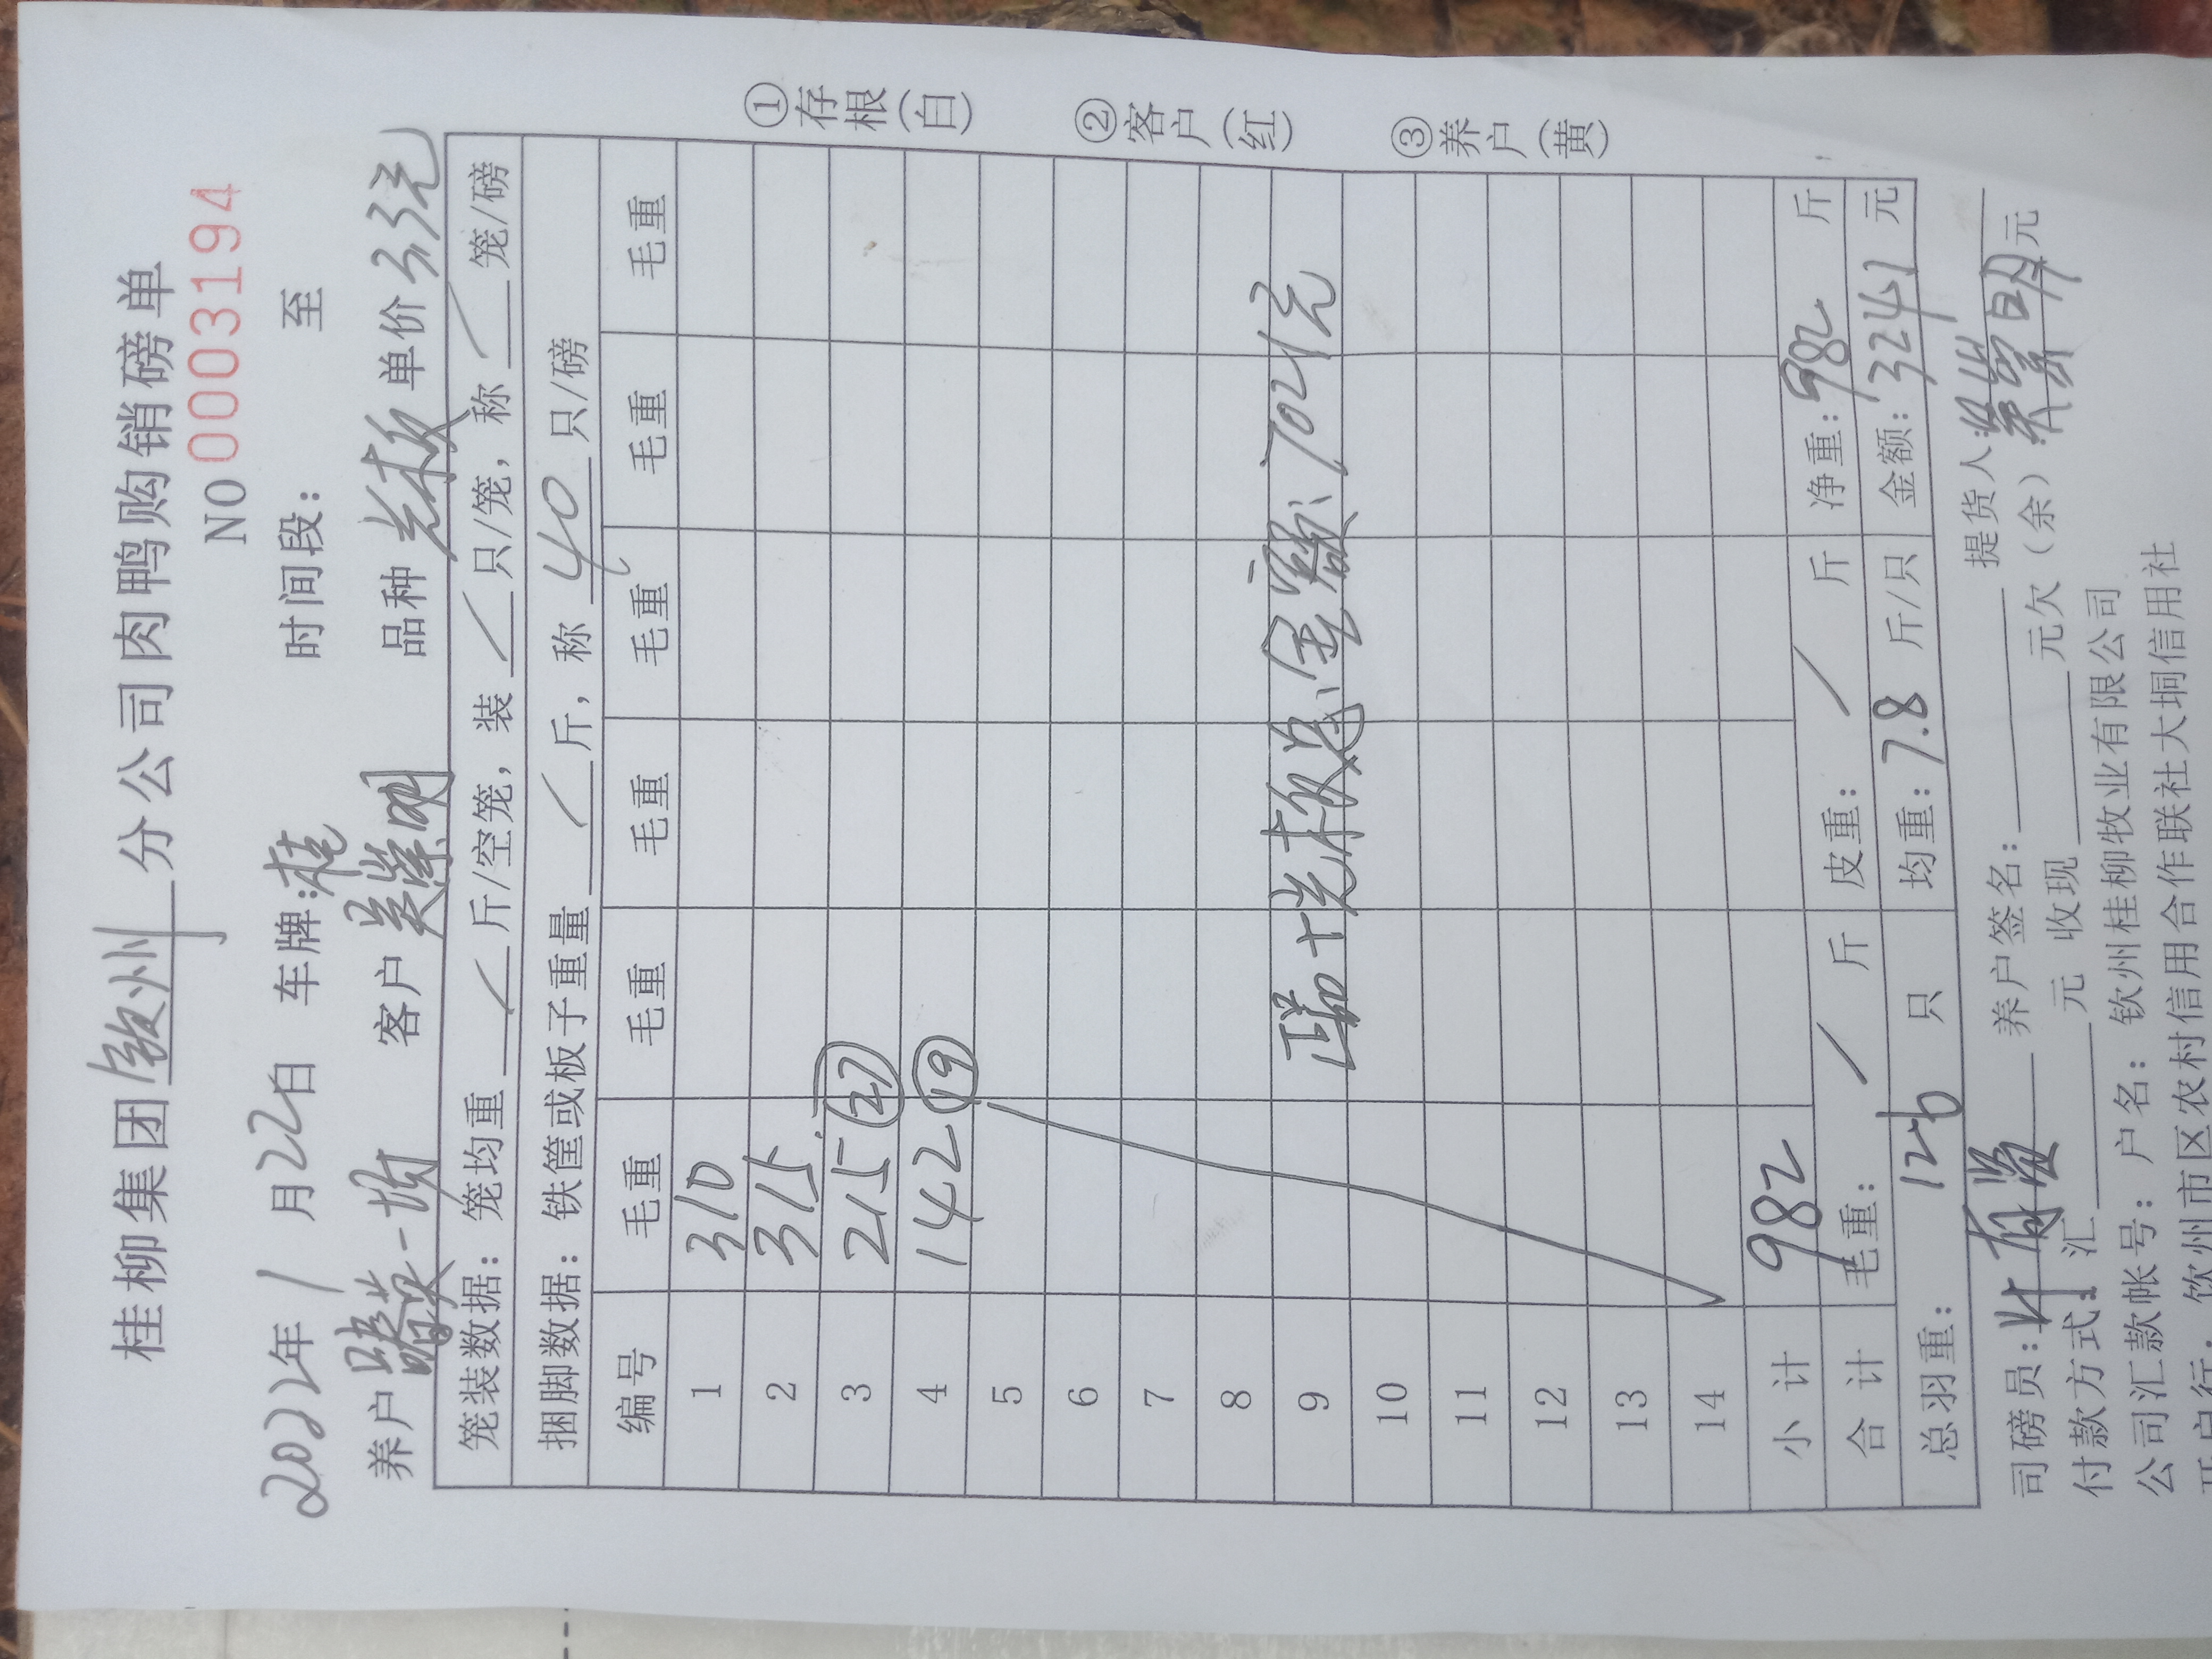 桂柳集团 钦州 分公司肉鸭购销磅单
NO 0003194
2022年 1 月 22日 车牌:桂 时间段: 至
养户 客户 吴崇明 品种 光板 单价 3.3元
笼装数据: 笼均重 / 斤/空笼, 装 / 只/笼, 称 / 笼/磅
捆脚数据: 铁筐或板子重量 / 斤, 称 40 只/磅
编号 毛重 毛重 毛重 毛重 毛重 毛重
1 310
2 315
3 215 27
4 142 19
5
6
7
8
9 正品+光板总金额: 7021元
10
11
12
13
14
小 计 982
合 计 毛重: / 斤 皮重: / 斤 净重: 982 斤
总羽重: 126 只 均重: 7.8 斤/只 金额: 3241 元
司磅员: 养户签名: 提货人:
付款方式: 汇 元 收现 元欠(余) 元
公司汇款帐号: 户名: 钦州桂柳牧业有限公司
开户行: 钦州市区农村信用合作联社大垌信用社
①存根(白)
②客户(红)
③养户(黄)